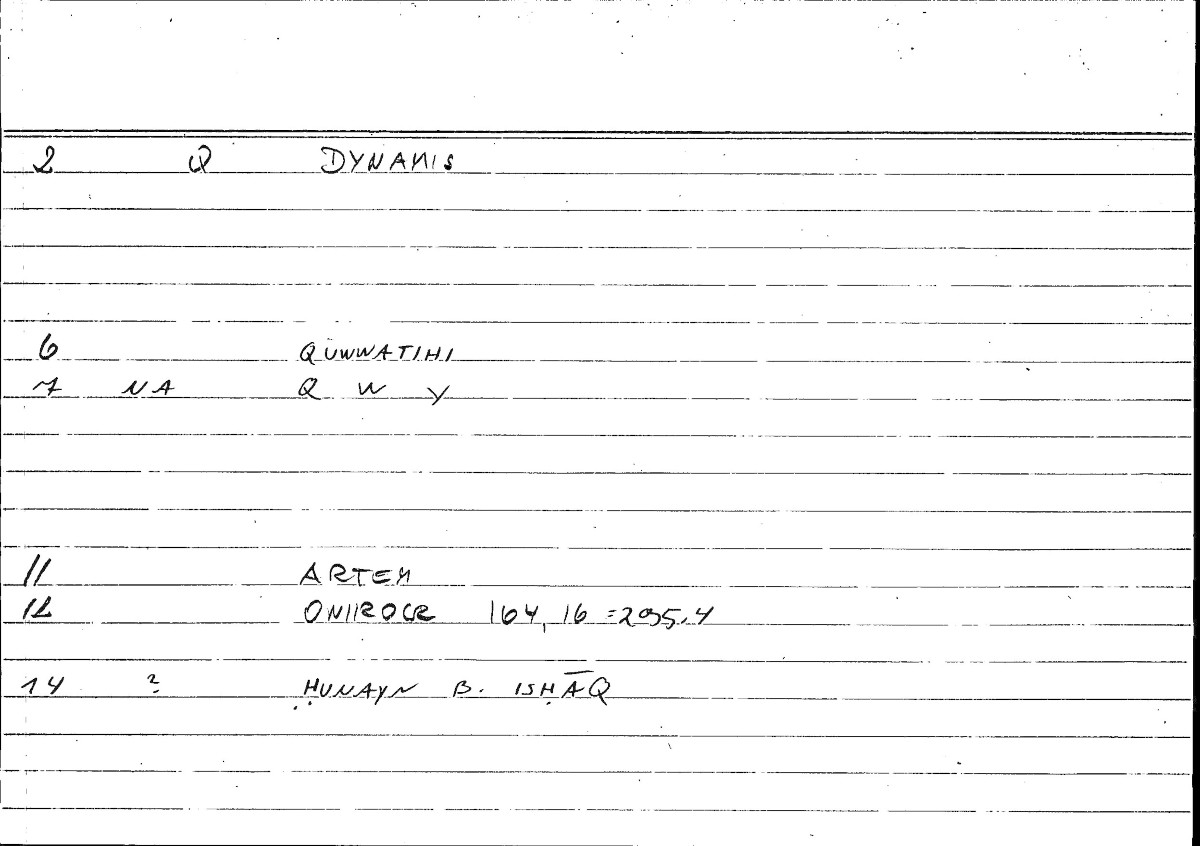 2 Q DYNAMIS
6 QUWWATIHI
7 NA Q W Y
11 ARTEM
12 ONIROCR 164,16=295.4
14 ? ḤUNAYN B. ISḤĀQ